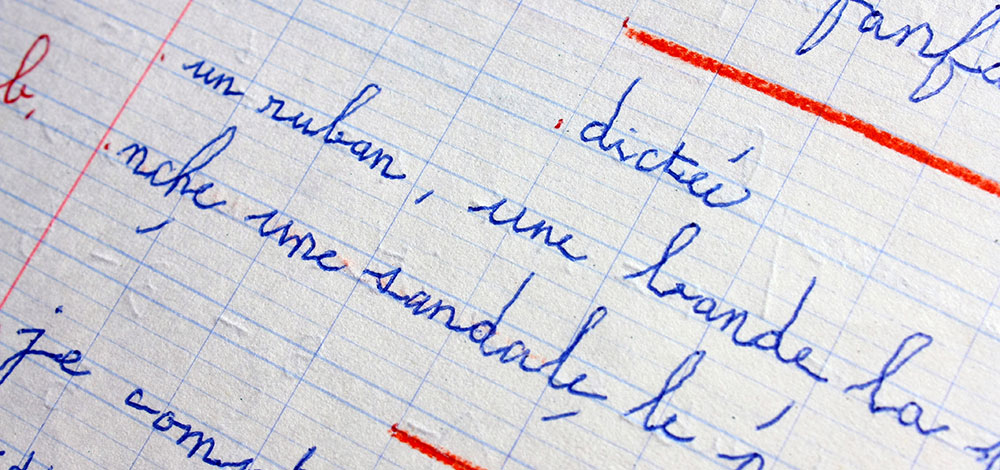 fanfa
dictée
un ruban, une bande, la
nche, une sandale, le
je comp